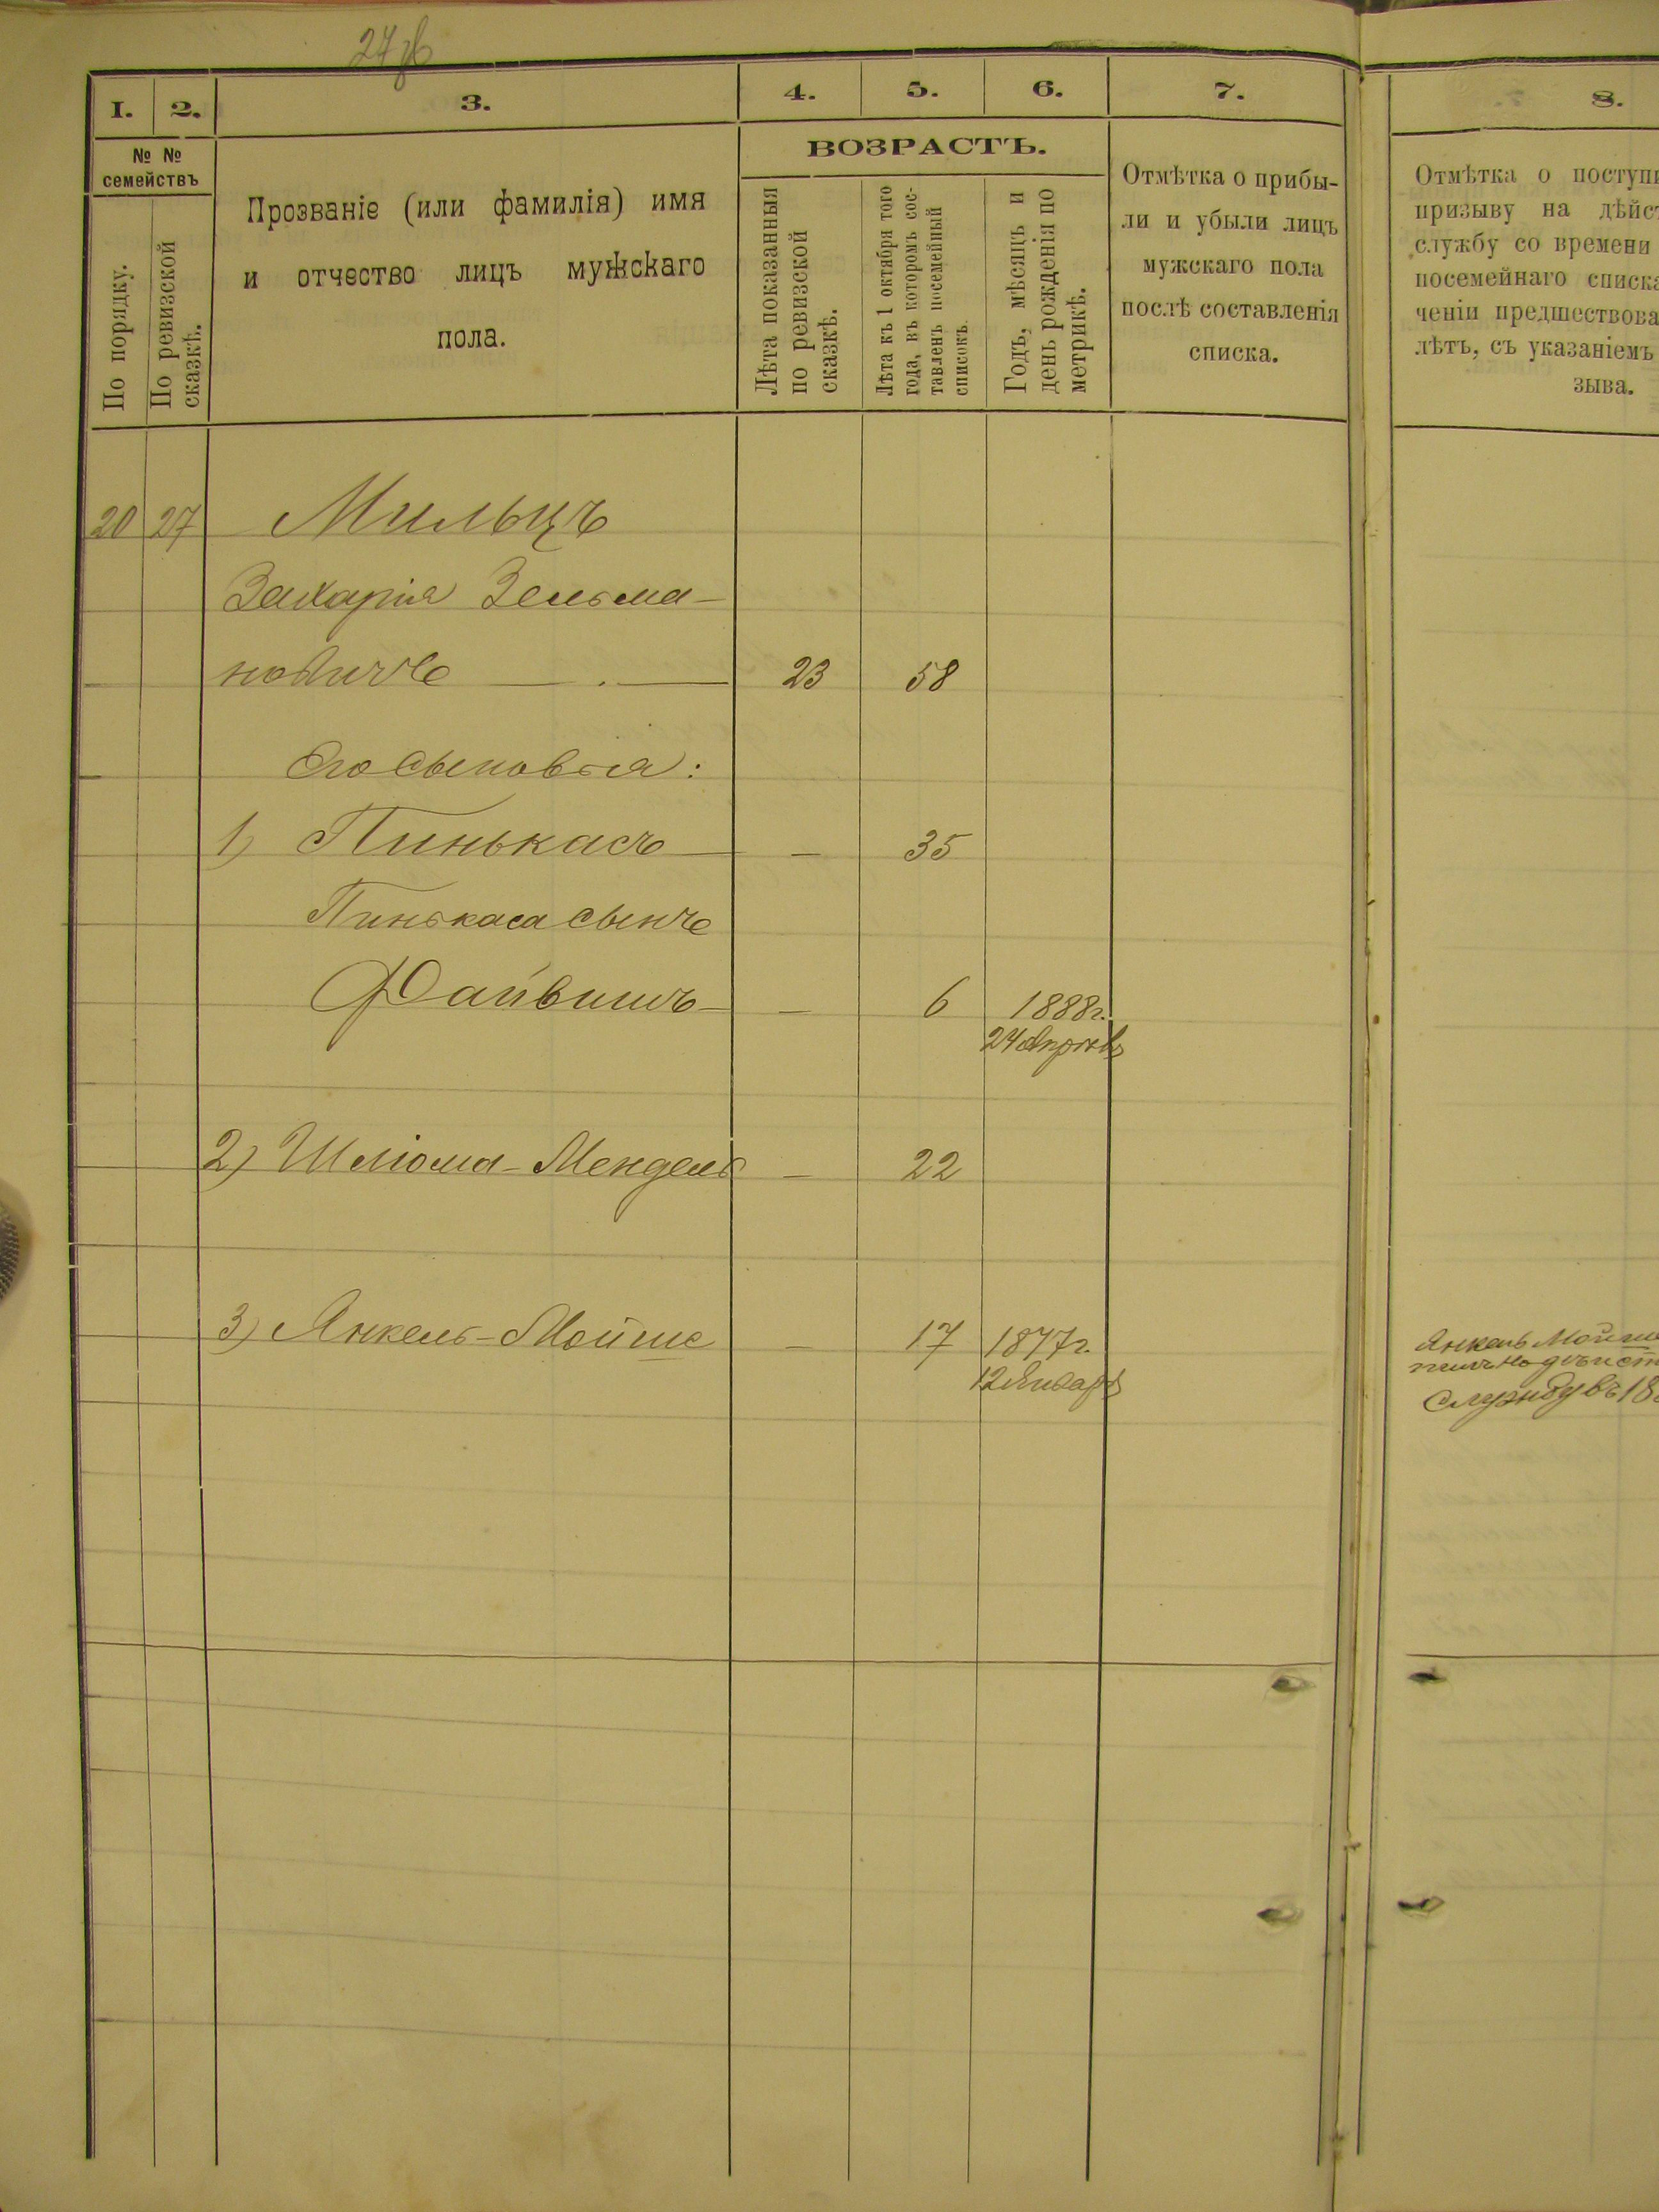 27
1. 2. 3. 4. 5. 6. 7. 8.
№ № семействъ
По порядку.
По ревизской сказкѣ.
Прозваніе (или фамилія) имя
и отчество лицъ мужскаго
пола.
ВОЗРАСТЪ.
Лѣта показанныя
по ревизской
сказкѣ.
Лѣта къ 1 октября того
года, въ которомъ сос-
тавленъ посемейный
списокъ.
Годъ, мѣсяцъ и
день рожденія по
метрикѣ.
Отмѣтка о прибы-
ли и убыли лицъ
мужскаго пола
послѣ составленія
списка.
Отмѣтка о поступи
призыву на дѣйст
службу со времени
посемейнаго списка
ченіи предшествова
лѣтъ, съ указаніемъ
зыва.
20 27 Мильцъ
Захарія Зельма-
новичъ — . — 23 58
Его сыновья:
1) Пинькасъ — — 35
Пинькаса сынъ
Файвишъ — — 6 1888г.
24 Апрѣль
2) Шліома-Мендель — 22
3) Янкель-Мойше — 17 1877г.
12 Январь
Янкель Мойше
службу въ 18